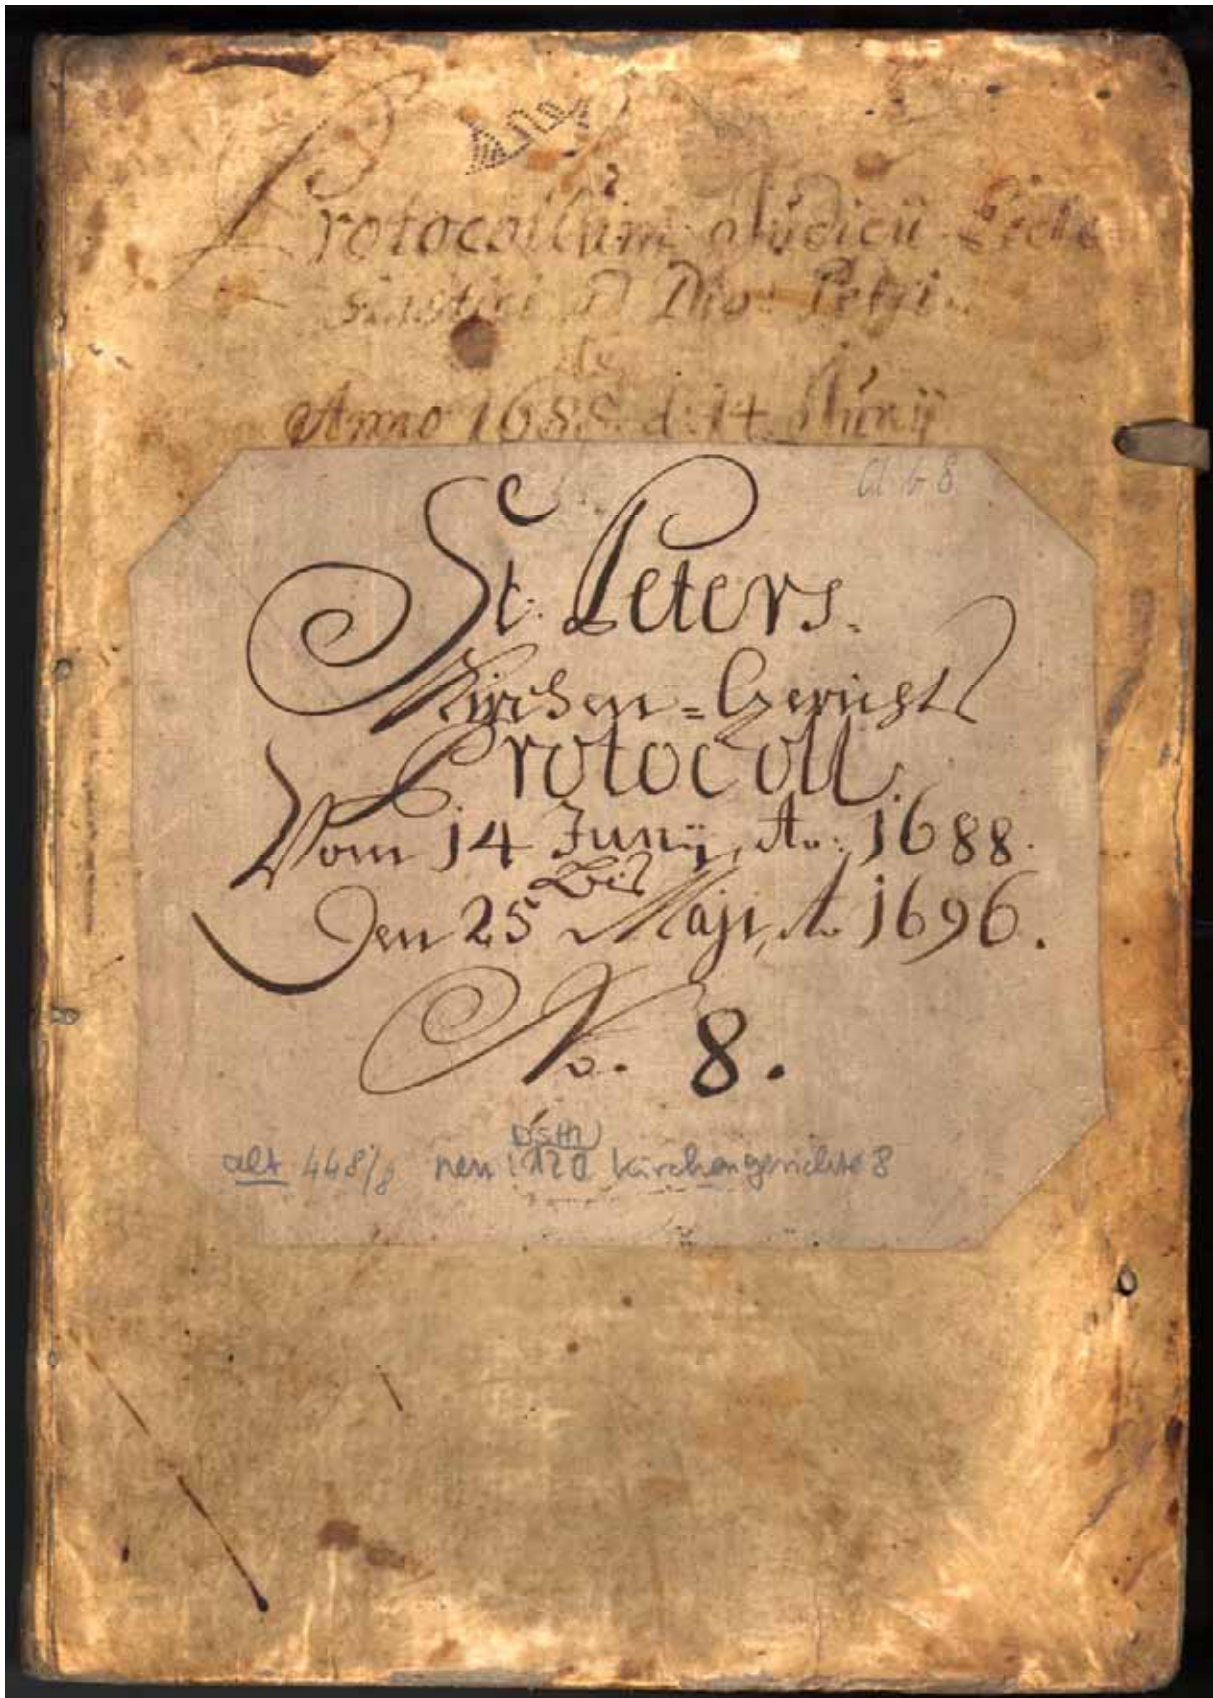 Protocollum Judicii Eccle
siastici D Divi Petri
de
Anno 1688. d: 14 Junij
St. Peters.
Kirchen=Gericht
Protocoll.
Vom 14 Junij, Ao: 1688.
Bis
Den 25 Maji, Ao 1696.
No. 8.
alt 448/8 neu: 120 Kirchengerichte 8